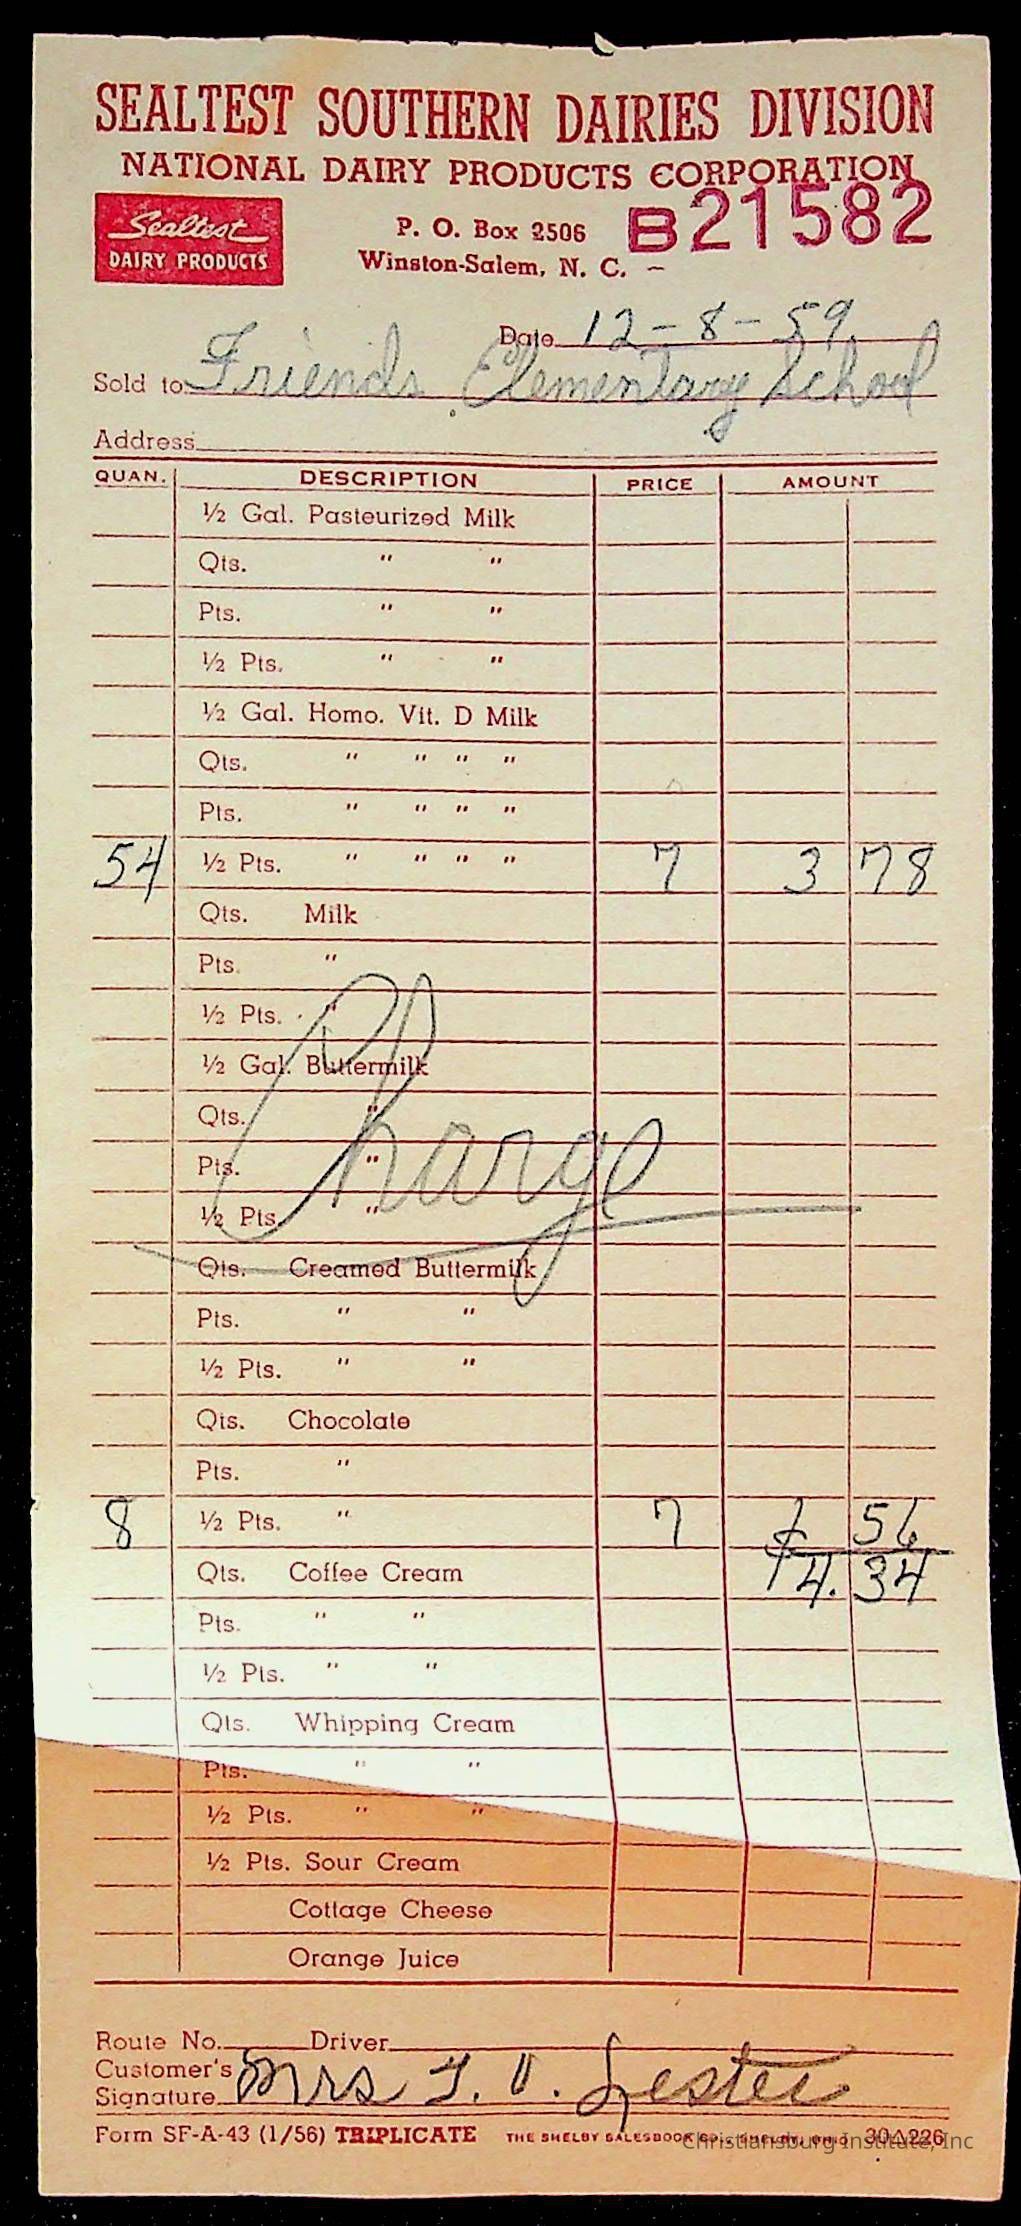 SEALTEST SOUTHERN DAIRIES DIVISION
NATIONAL DAIRY PRODUCTS CORPORATION
Sealtest
DAIRY PRODUCTS
P. O. Box 2506
Winston-Salem, N. C.
B21582
Date 12-8-59
Sold to Friends Elementary School
Address
QUAN. DESCRIPTION PRICE AMOUNT
½ Gal. Pasteurized Milk
Qts. " "
Pts. " "
½ Pts. " "
½ Gal. Homo. Vit. D Milk
Qts. " " " "
Pts. " " " "
54 ½ Pts. " " " " 7 3 78
Qts. Milk
Pts. "
½ Pts. "
½ Gal. Buttermilk
Qts. "
Pts. "
Charge
½ Pts. "
Qts. Creamed Buttermilk
Pts. " "
½ Pts. " "
Qts. Chocolate
Pts. "
8 ½ Pts. " 7 56
Qts. Coffee Cream $4.34
Pts. " "
½ Pts. " "
Qts. Whipping Cream
Pts. " "
½ Pts. " "
½ Pts. Sour Cream
Cottage Cheese
Orange Juice
Route No. Driver
Customer's
Signature Mrs. Lester
Form SF-A-43 (1/56) TRIPLICATE THE SHELBY SALESBOOK CO., SHELBY, OHIO 30A226
Christiansburg Institute, Inc